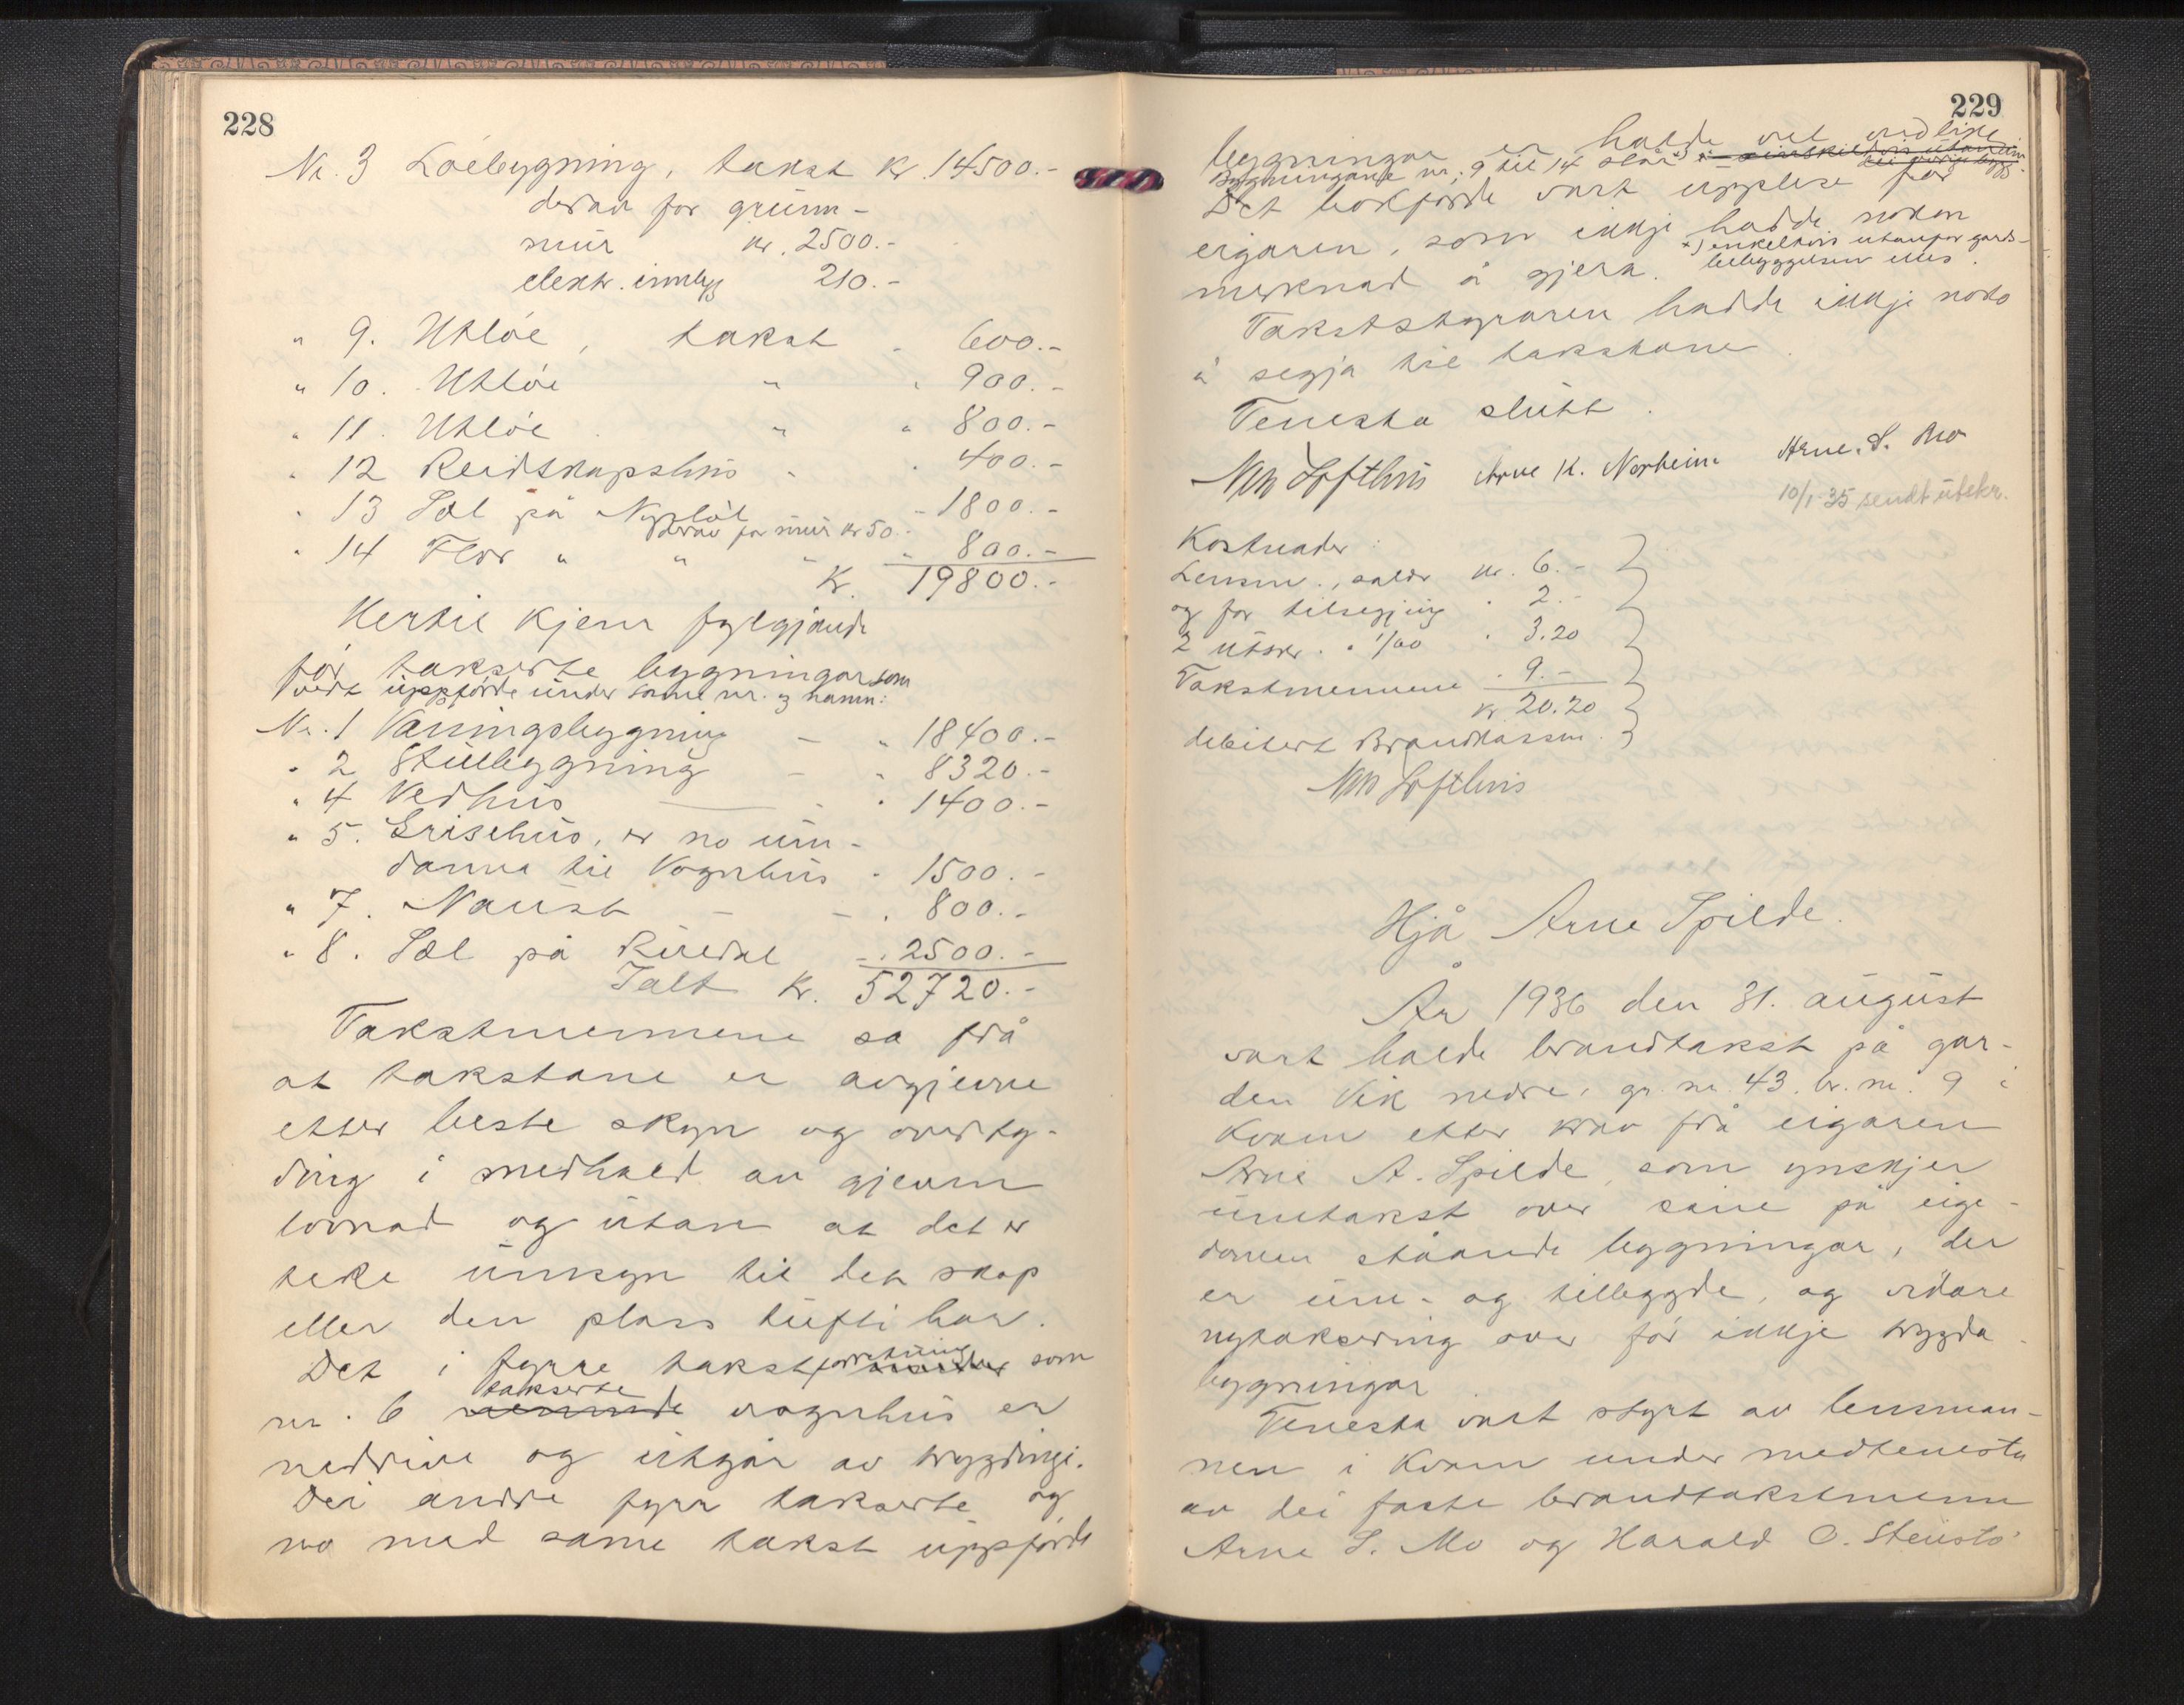 228
Nr. 3 Løebygning, takst kr. 14500.-
derav for grunn-
mur kr. 2500.-
elektr. innlegg 210.-
" 9. Utløe, takst " 600.-
" 10. Utløe " " 900.-
" 11. Utløe " " 800.-
" 12 Reidskapshus " " 400.-
" 13 Sæl på - 1800.-
derav for mur kr 50.-
" 14 Flor " " " " 800.-
Kr. 19800.-
Hertil kjem fylgjande
før takserte bygningar som
vert uppførde under same nr. og namn:
Nr. 1 Våningsbygning - " 18400.-
" 2 Stullbygning - " 8320.-
" 4 Vedhus - " 1400.-
" 5. Grisehus, er no um-
danna til Vognhus " 1500.-
" 7. Naust - - " 800.-
" 8. Sæl på - " 2500.-
Ialt kr. 52720.-
Takstmennene sa frå
at takstane er avgjevne
etter beste skyn og overty-
ding i medhald av gjevin
lovnad og utan at det er
teke umsyn til det skap
eller den plass tufti har.
Det i fyrre takstforretning som
nr. 6 takserte nemnde vognhus er
nedrive og utgår av trygdingi.
Dei andre fyrr takserte og
no med same takst uppførde
229
bygningar er halde vel vedlike
Bygningane nr. 9 til 14 står x)
Det bokførde vart upplese for
eigaren, som ikkje hadde nokon
x) enkeltvis utanfor gards-
bebyggelsen elles.
merknad å gjera.
Takststyraren hadde ikkje noko
å segja til takstane.
Tenesta slutt.
Lofthus Arne K. Norheim Arne. S. Mo
10/1-35 sendt utskr.
Kostnader:
Lensm., salær kr. 6.-
og for tilsegjing " 2.-
2 utskr. " 1/60 " 3.20
Takstmennene " 9.-
kr 20.20
debitert Brandkassen.
Lofthus
Hjå Arne Spilde.
År 1936 den 31. august
vart halde brandtakst på gar-
den Vik nedre, gr. nr. 43. br. nr. 9 i
Kvam etter krav frå eigaren
Arne A. Spilde, som ynskjer
umtakst over sine på eige-
domen ståande bygningar, der
er um- og tilbygde, og vidare
nytaksering over før ikkje trygda
bygningar
Tenesta vart styrt av lensman-
nen i Kvam under medtenesta
av dei faste brandtakstmenn
Arne S. Mo og Harald O. Steinstø